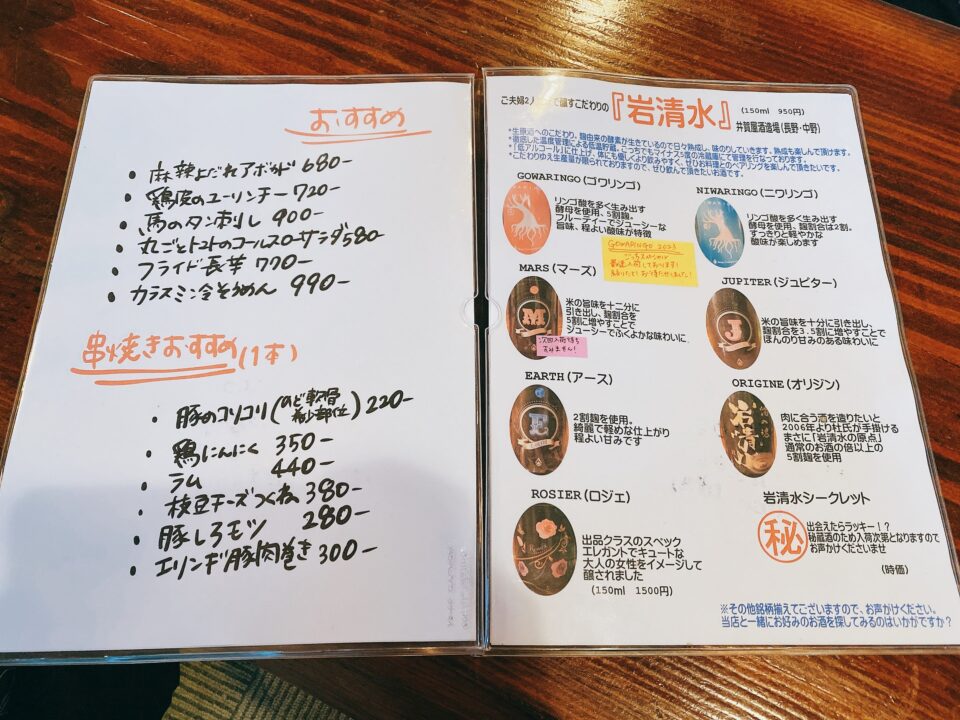 おすすめ
・麻辣よだれアボカド 680-
・鶏皮のユーリンチー 720-
・馬のタン刺し 900-
・丸ごとトマトのコールスローサラダ 580-
・フライド長芋 770-
・カラスミ冷そうめん 990-
串焼きおすすめ(1本)
・豚のコリコリ(のど軟骨 希少部位) 220-
・鶏にんにく 350-
・ラム 440-
・枝豆チーズつくね 380-
・豚しろモツ 280-
・エリンギ豚肉巻き 300-
ご夫婦2人 で醸すこだわりの『岩清水』 (150ml 950円)
井賀屋酒造場(長野・中野)
*生原酒へのこだわり、麹由来の酵素が生きているので日々熟成し、味のりしていきます。熟成も楽しんで頂けます。
*徹底した温度管理による低温貯蔵。こっちでもマイナス5度の冷蔵庫にて管理を行なっております。
*「低アルコール」に仕上げ、体にも優しくより飲みやすく、ぜひお料理とのペアリングを楽しんで頂きたいです。
*こだわりゆえ生産量が限られておりますので、ぜひ飲んで頂きたいお酒です。
GOWARINGO(ゴワリンゴ)
リンゴ酸を多く生み出す
酵母を使用、5割麹。
フルーティーでジューシーな
旨味、程よい酸味が特徴
GOWARINGO 2023
お待たせしました!
NIWARINGO(ニワリンゴ)
リンゴ酸を多く生み出す
酵母を使用、麹割合は2割。
すっきりと軽やかな
酸味が楽しめます
MARS(マーズ)
M
米の旨味を十二分に
引き出し、麹割合を
5割に増やすことで
ジューシーでふくよかな味わいに
次回入荷待ち
すみません!
JUPITER(ジュピター)
J
米の旨味を十分に引き出し、
麹割合を3.5割に増やすことで
ほんのり甘みのある味わいに
EARTH(アース)
E
2割麹を使用。
綺麗で軽めな仕上がり
程よい甘みです
ORIGINE(オリジン)
岩清水
肉に合う酒を造りたいと
2006年より杜氏が手掛ける
まさに「岩清水の原点」
通常のお酒の倍以上の
5割麹を使用
ROSIER(ロジェ)
出品クラスのスペック
エレガントでキュートな
大人の女性をイメージして
醸されました
(150ml 1500円)
岩清水シークレット
秘
出会えたらラッキー!?
秘蔵酒のため入荷次第となりますので
お声がけくださいませ
(時価)
※その他銘柄揃えてございますので、お声がけください。
当店と一緒にお好みのお酒を探してみるのはいかがですか?